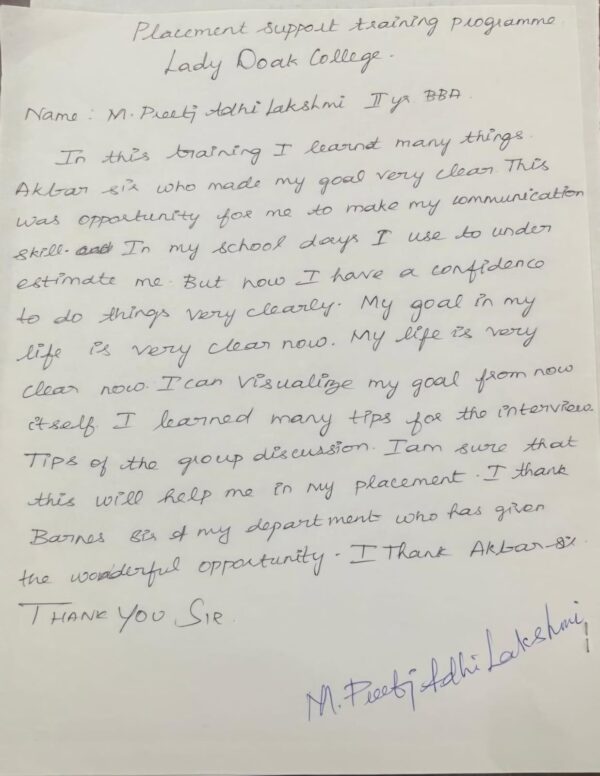 Placement support training programme
Lady Doak College.
Name : M. Preetj Adhi Lakshmi II yr BBA.
In this training I learnt many things.
Akbar sir who made my goal very clear. This
was opportunity for me to make my communication
skill. and In my school days I use to under
estimate me. But now I have a confidence
to do things very clearly. My goal in my
life is very clear now. My life is very
clear now. I can visualize my goal from now
itself. I learned many tips for the interview.
Tips of the group discussion. I am sure that
this will help me in my placement. I thank
Barnes sir of my department who has given
the wonderful opportunity. I Thank Akbar sir.
THANK YOU SIR.
M. Preetj Adhi Lakshmi